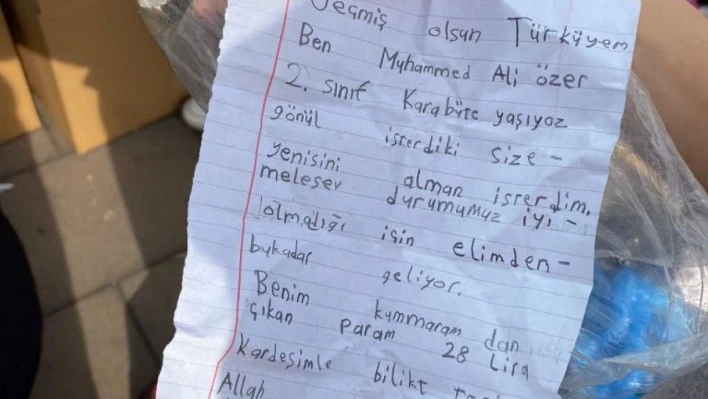 Geçmiş olsun Türküyem
Ben Muhammed Ali özer
2. sınıf Karabüte yaşıyoz
gönül isterdiki size -
yenisini alman isterdim,
melesev durumumuz iyi -
olmadığı için elimden -
bukadar geliyor.
Benim kummaram dan
çıkan param 28 lira
Kardeşimle bilikt
Allah